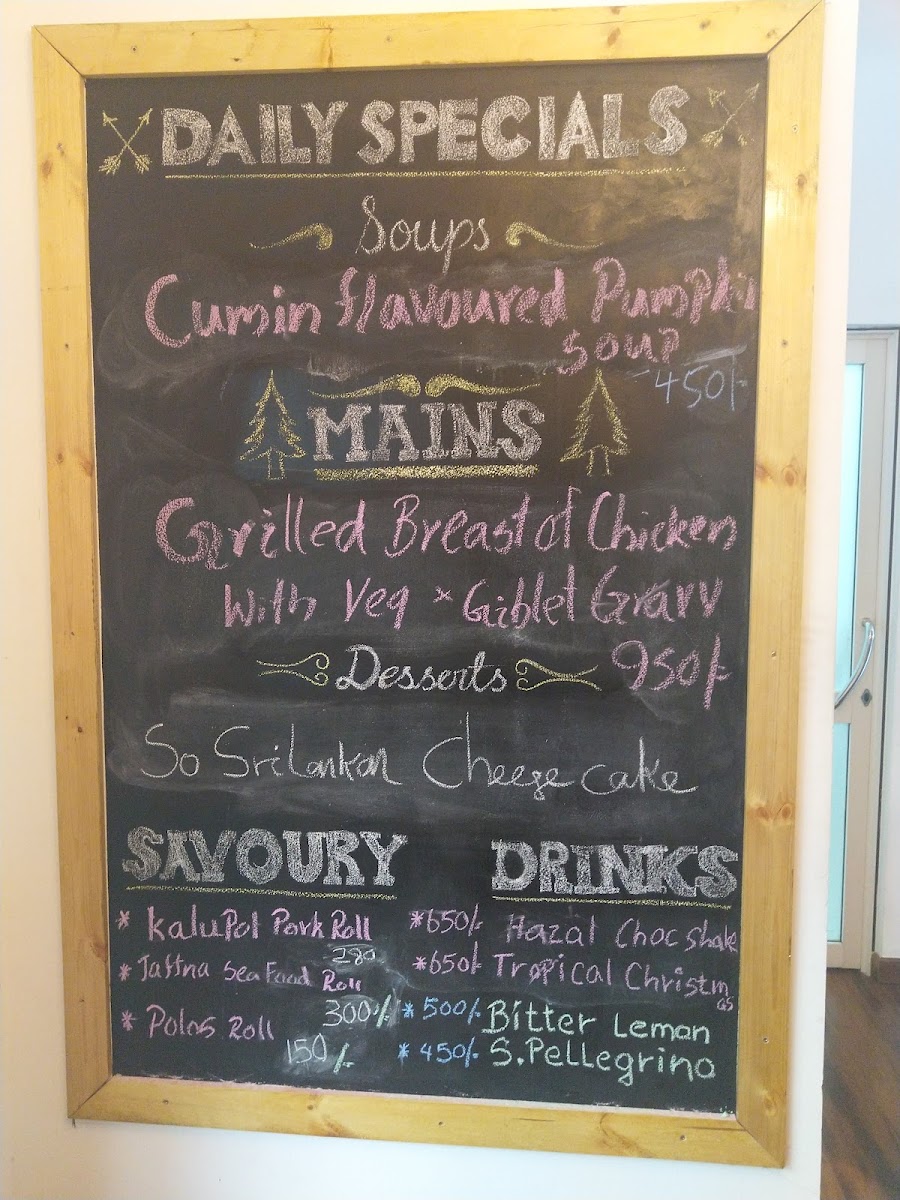 DAILY SPECIALS
Soups
Cumin flavoured Pumpkin
Soup
450/-
MAINS
Grilled Breast of Chicken
With Veg * Giblet Gravy
Desserts 950/-
So SriLankan Cheese cake
SAVOURY DRINKS
* KaluPol Pork Roll *650/- Hazal Choc shake
280
* Jaffna Sea Food Roll *650/- Tropical Christmas
300/- * 500/- Bitter Leman
* Polos Roll
150/- * 450/- S.Pellegrino